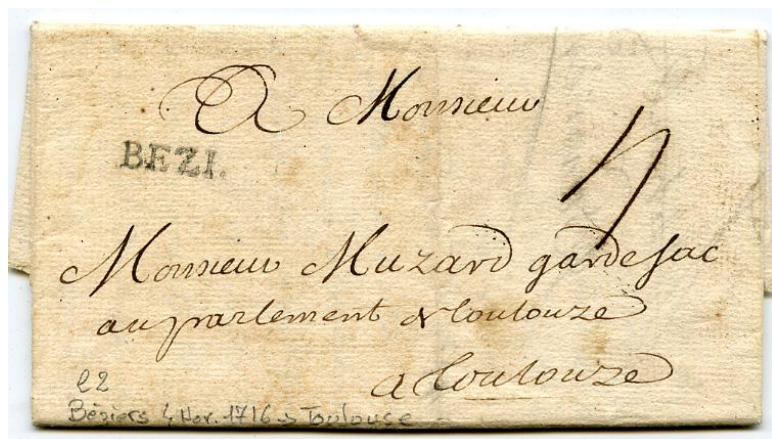 A Monsieur
BEZI.
4
Monsieur Muzard gardesac
au parlement de Toulouze
a Toulouze
L2
Béziers 4 Nov. 1716 → Toulouse